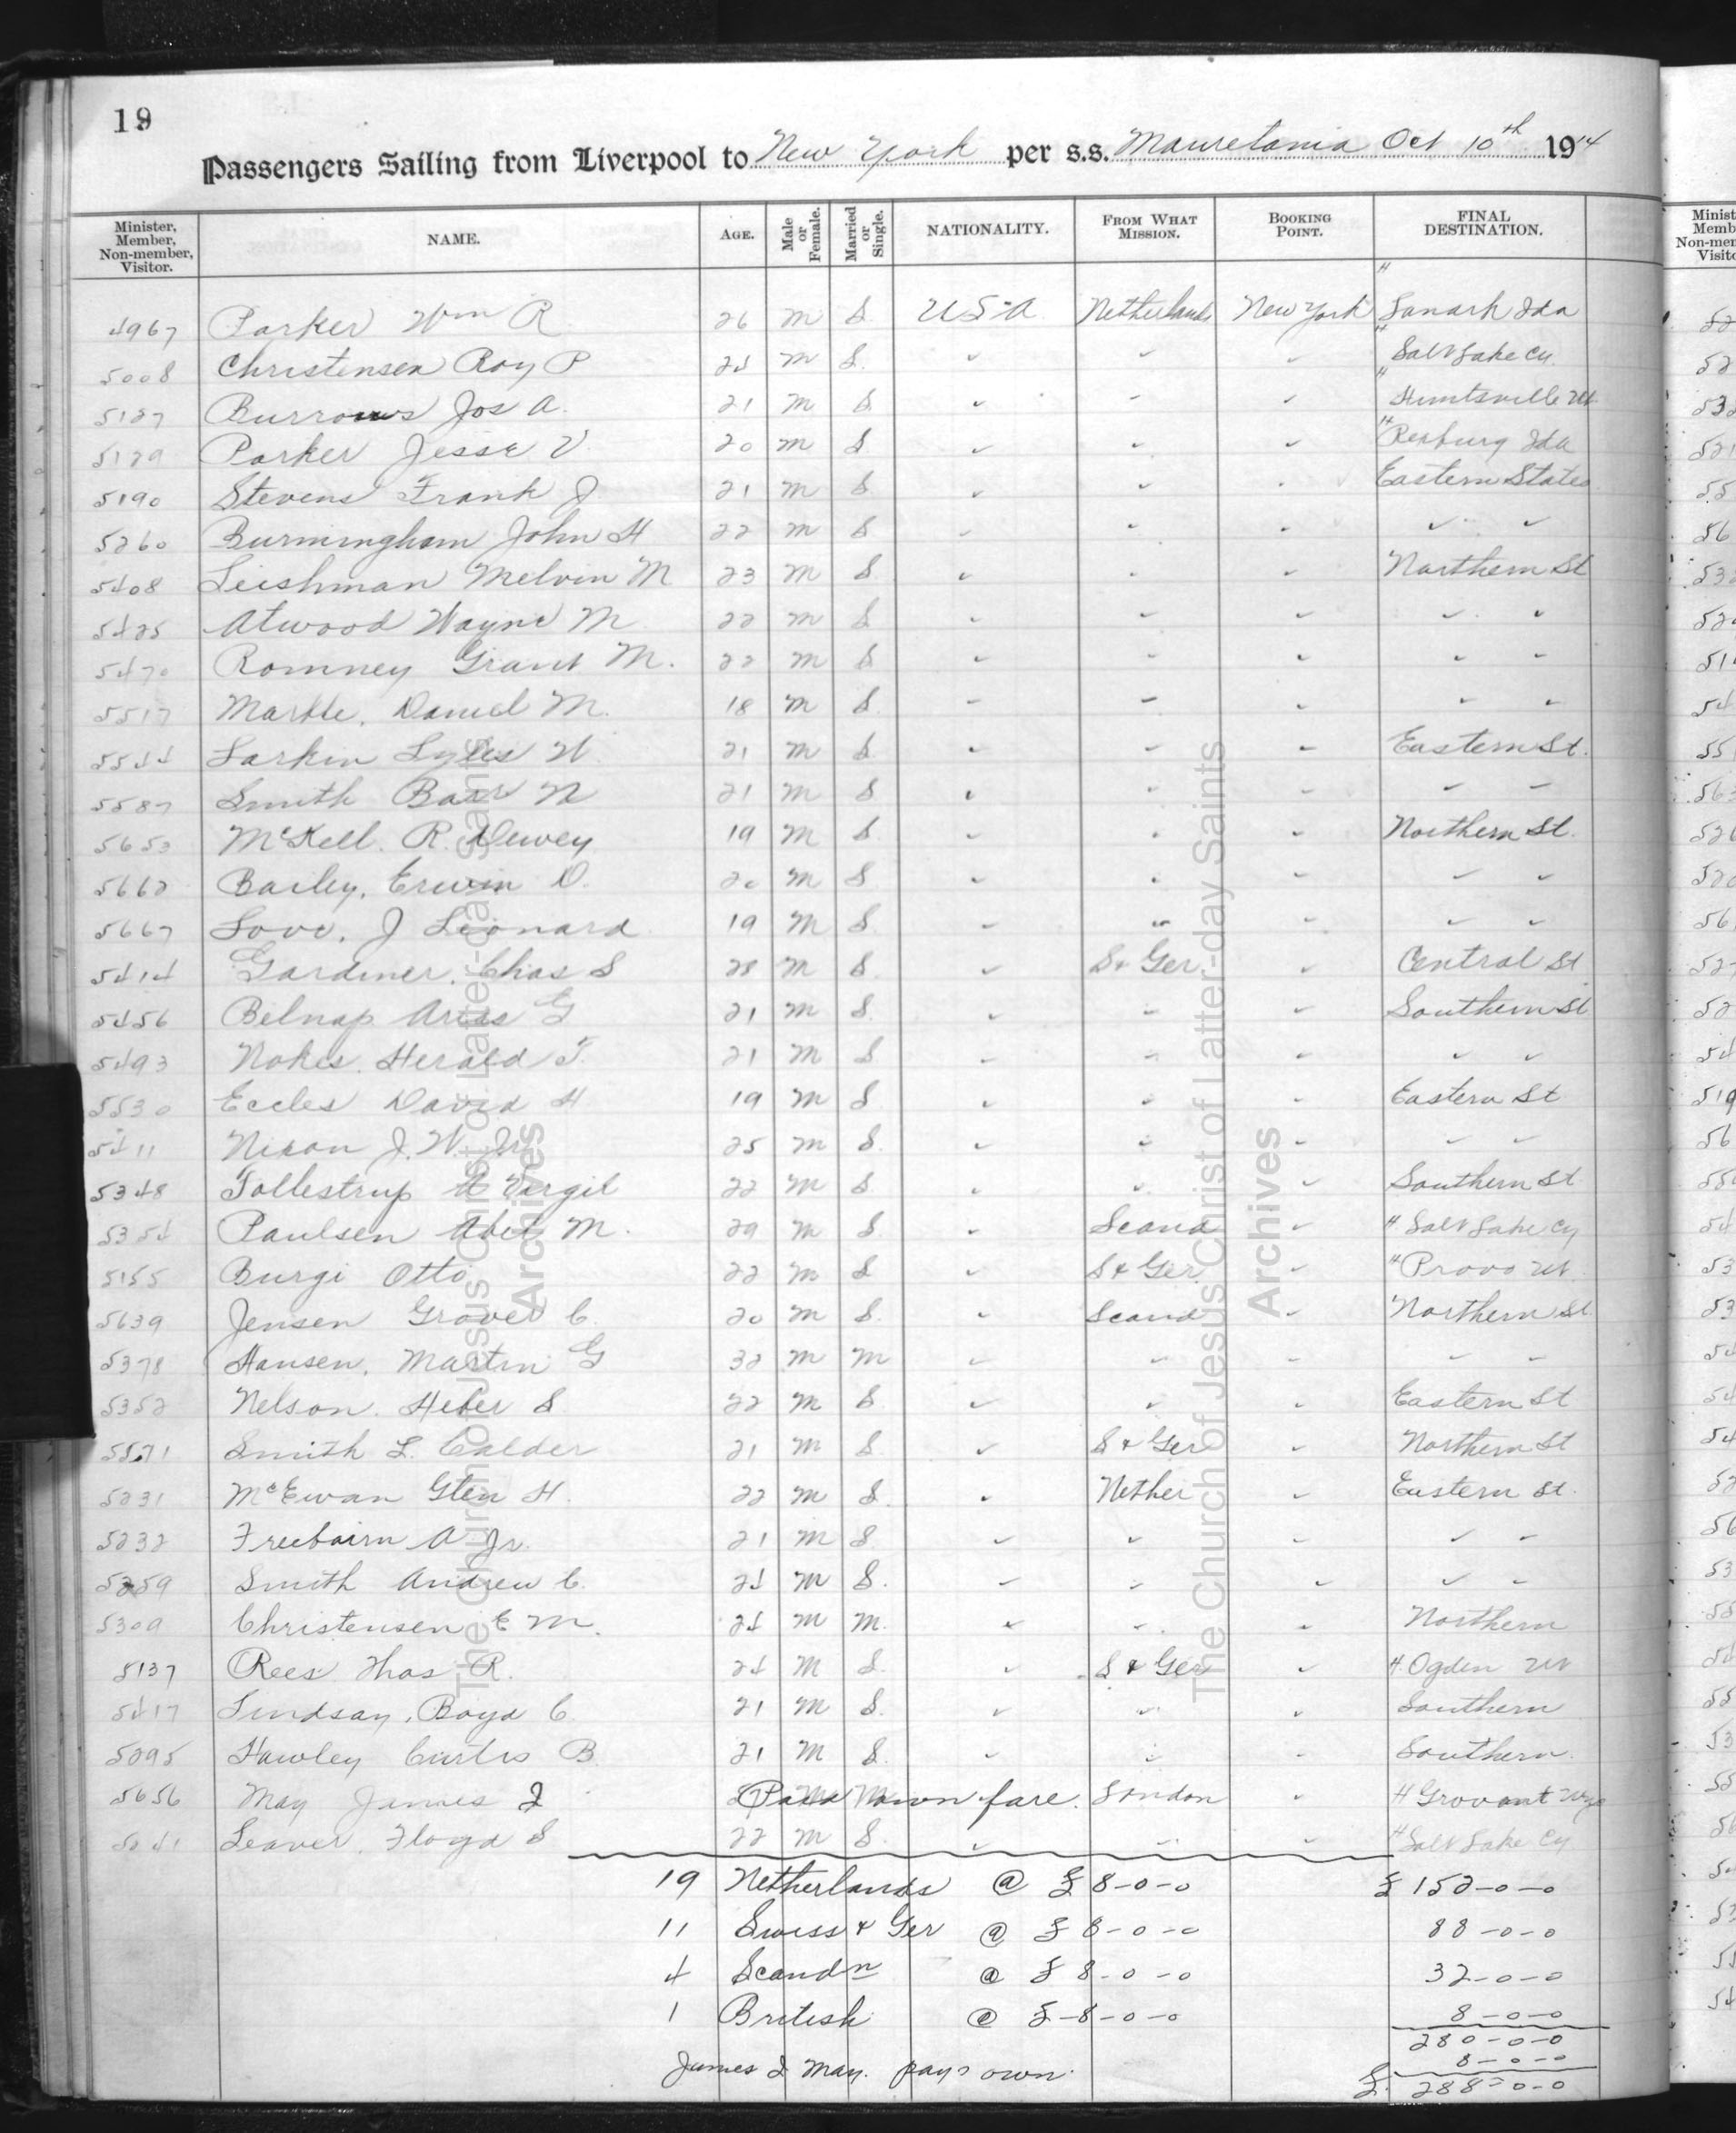 19
Passengers Sailing from Liverpool to New York per s.s. Mauretania Oct 10th 1914
Minister, Member, Non-member, Visitor. NAME. AGE. Male or Female. Married or Single. NATIONALITY. FROM WHAT MISSION. BOOKING POINT. FINAL DESTINATION.
4967 Parker Wm R 26 M S. USA Netherlands New York " Lanark Ida
5008 Christensen Roy P 24 M S. " Salt Lake Cy.
5127 Burrows Jos A. 21 M S. " Huntsville Ut
5129 Parker Jesse V 20 M S. " Rexburg Ida
5190 Stevens Frank J 21 M S Eastern States
5260 Burmingham John H 22 M S
5408 Leishman Melvin M 23 M S Northern St
5425 Atwood Wayne M 22 M S
5470 Romney Grant M. 22 M S
5517 Markle, Daniel M. 18 M S.
5544 Larkin Lyles W 21 M S. Eastern St.
5587 Smith Barr N 21 M S
5653 McKell. R. Dewey 19 M S. Northern St.
5662 Bailey, Erwin D. 20 M S
5667 Love, J Leonard 19 M S.
5414 Gardiner, Chas S 28 M S. S & Ger. Central St
5456 Belnap Arias G 21 M S. Southern St
5493 Nokes, Herald T. 21 M S
5530 Eccles David H. 19 M S Eastern St
5411 Nixon J. W. Jr. 25 M S.
5348 Tollestrup A Virgil 22 M S Southern St
5354 Paulsen Abel M. 29 M S Scand " Salt Lake Cy
5155 Burgi Otto 22 M S S & Ger. " Provo Ut
5639 Jensen Grover C. 20 M S. Scand Northern St
5378 Hansen, Martin G 32 M M
5352 Nelson. Heber S. 22 M S. Eastern St
5571 Smith L. Calder 21 M S. S & Ger Northern St
5231 McEwan Glen H. 22 M S. Nether Eastern St.
5232 Freebairn A. Jr. 21 M S.
5259 Smith Andrew C. 24 M S.
5309 Christensen E M. 24 M M. Northern
5137 Rees Thos R. 24 M S. S & Ger H Ogden Ut
5417 Lindsay, Boyd C. 21 M S. Southern
5095 Hawley Curtis B. 21 M S. Southern
5656 May James I Paid own fare. London H Grovont Wyo
5041 Leaver, Floyd S 22 M S. " Salt Lake Cy
19 Netherlands @ £ 8-0-0 £ 152-0-0
11 Swiss & Ger @ £ 8-0-0 88-0-0
4 Scandn @ £ 8-0-0 32-0-0
1 British @ £-8-0-0 8-0-0
280-0-0
8-0-0
James I May. pays own. £. 288-0-0
The Church of Jesus Christ of Latter-day Saints
Archives
The Church of Jesus Christ of Latter-day Saints
Archives